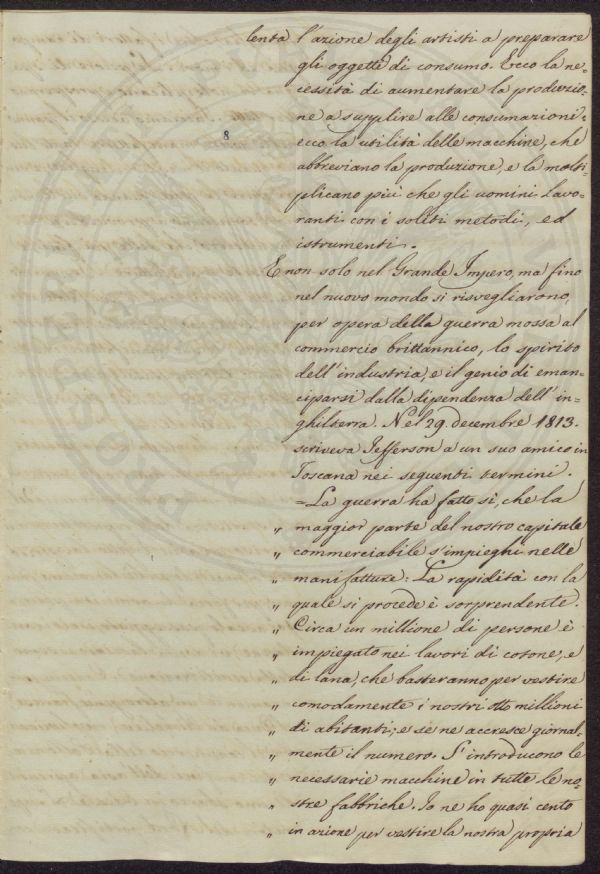 lenta l'azione degli artisti a preparare
gli oggetti di consumo. Ecco la ne=
cessità di aumentare la produzio=
ne a supplire alle consumazioni:
8
ecco la utilità delle macchine, che
abbreviano la produzione, e la molti=
plicano più che gli uomini lavo=
ranti con i soliti metodi, ed
istrumenti.
E non solo nel Grande Impero, ma fino
nel nuovo mondo si risvegliarono,
per opera della guerra mossa al
commercio brittannico, lo spirito
dell'industria, e il genio di eman=
ciparsi dalla dipendenza dell'in=
ghilterra. Nel 29. decembre 1813.
scriveva Jefferson a un suo amico in
Toscana nei seguenti termini.
=La guerra ha fatto sì, che la
" maggior parte del nostro capitale
" commerciabile s'impieghi nelle
" manifatture. La rapidità con la
" quale si procede è sorprendente.
" Circa un millione di persone è
" impiegato nei lavori di cotone, e
" di lana, che basteranno per vestire
" comodamente i nostri otto millioni
" di abitanti; e se ne accresce giornal=
" mente il numero. S'introducono le
" necessarie macchine in tutte le no=
" stre fabbriche. Io ne ho quasi cento
" in azione per vestire la nostra propria